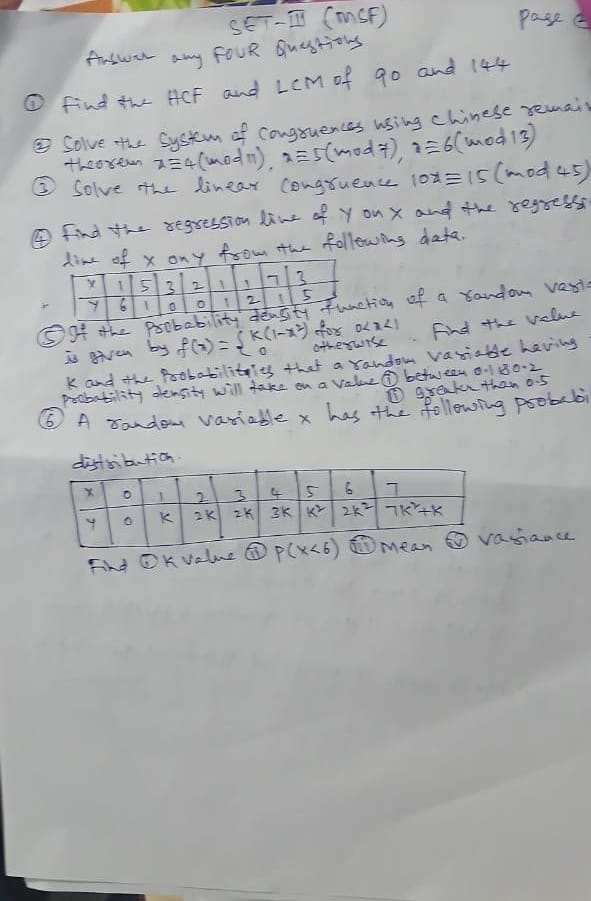 SET-III (MSF)
Page
Answer any FOUR Questions
① Find the HCF and LCM of 90 and 144
② Solve the System of Congruences using Chinese remai
theorem x≡4(mod 11), x≡5(mod 7), x≡6(mod 13)
③ Solve the linear Congruence 10x≡15(mod 45)
④ Find the regression line of Y on X and the regressi
line of X on Y from the following data.
X 1 5 3 2 1 1 7 3
Y 6 1 0 0 1 2 1 5
⑤ If the Probability density function of a random varia
is given by f(x) = { K(1-x²) for 0<x<1
0 otherwise . Find the value
K and the Probabilities that a random variable having
Probability density will take on a value ① between 0.1 & 0.2
⑪ greater than 0.5
⑥ A random variable x has the following probabi
distribution.
X 0 1 2 3 4 5 6 7
Y 0 K 2K 2K 3K K² 2K² 7K²+K
Find ① K value ⑪ P(X<6) ⑪⑪ Mean ⑭ variance